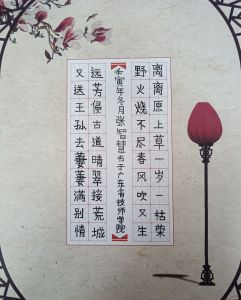 离离原上草一岁一枯荣
野火烧不尽春风吹又生
壬寅年冬月张智慧书于广东省技师学院
远芳侵古道晴翠接荒城
又送王孙去萋萋满别情